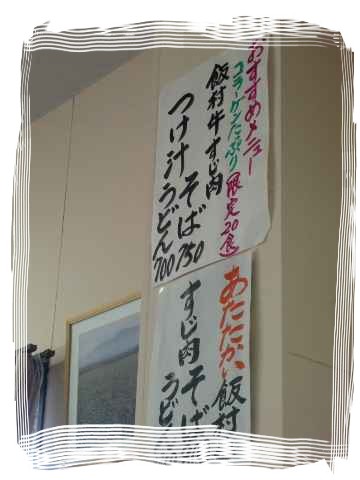 おすすめメニュー
コラーゲンたっぷり限定20食
飯村牛すじ肉
つけ汁そば750
うどん700
あたたかい飯村
すじ肉そば
うどん